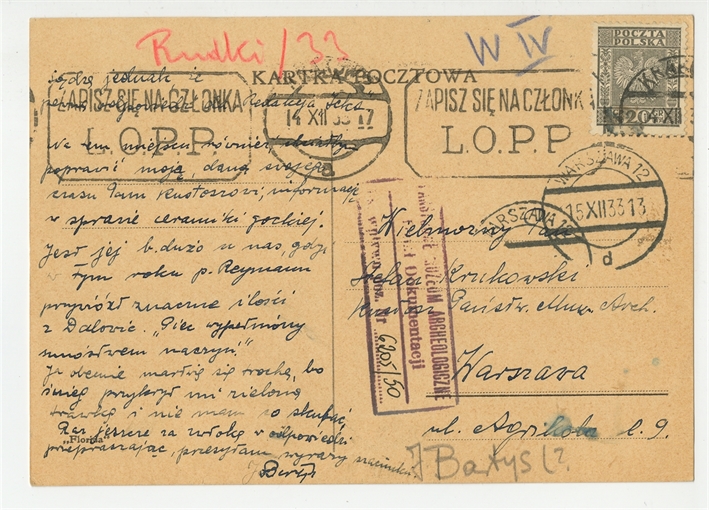 Rudki/33
W IV
POCZTA
POLSKA
20
KARTKA POCZTOWA
ZAPISZ SIĘ NA CZŁONKA
L.O.P.P.
14 XII 33 17
ZAPISZ SIĘ NA CZŁONK
L.O.P.P
WARSZAWA 12
15 XII 33 13
d
WARSZAWA 12
Sądzę jednak że
Redakcja
Na tem miejscu również
poprawić moją, daną swojego
czasu Panu Kustoszowi, informację
w sprawie ceramiki gockiej.
Jest jej b. dużo u nas, gdyż
w tym roku p. Reymann
przywiózł znaczne ilości
z Dalovic. „Piec wypełniony
mnóstwem naczyń”.
Ja obecnie martwię się trochę, bo
śnieg przykrył mi zieloną
trawkę i nie mam co skubać.
Raz jeszcze za zwłokę w odpowiedzi
przepraszając, przesyłam wyrazy szacunku.
„Florida”
MUZEUM ARCHEOLOGICZNE
Dział Dokumentacji
6205/50
Wielmożny Pan
Stefan Krukowski
Kustosz Państw. Muz. Arch.
Warszawa
ul. Agrikola l. 9.
J Bartys (?